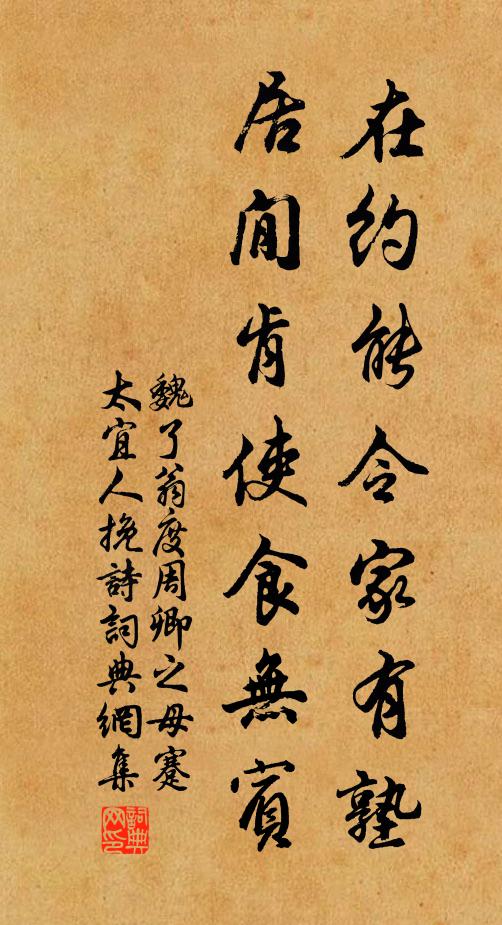 在約能令家有塾
居閒肯使食無賓
魏了翁度周卿之母蹇
太宜人挽詩詞典網集
詞典网印